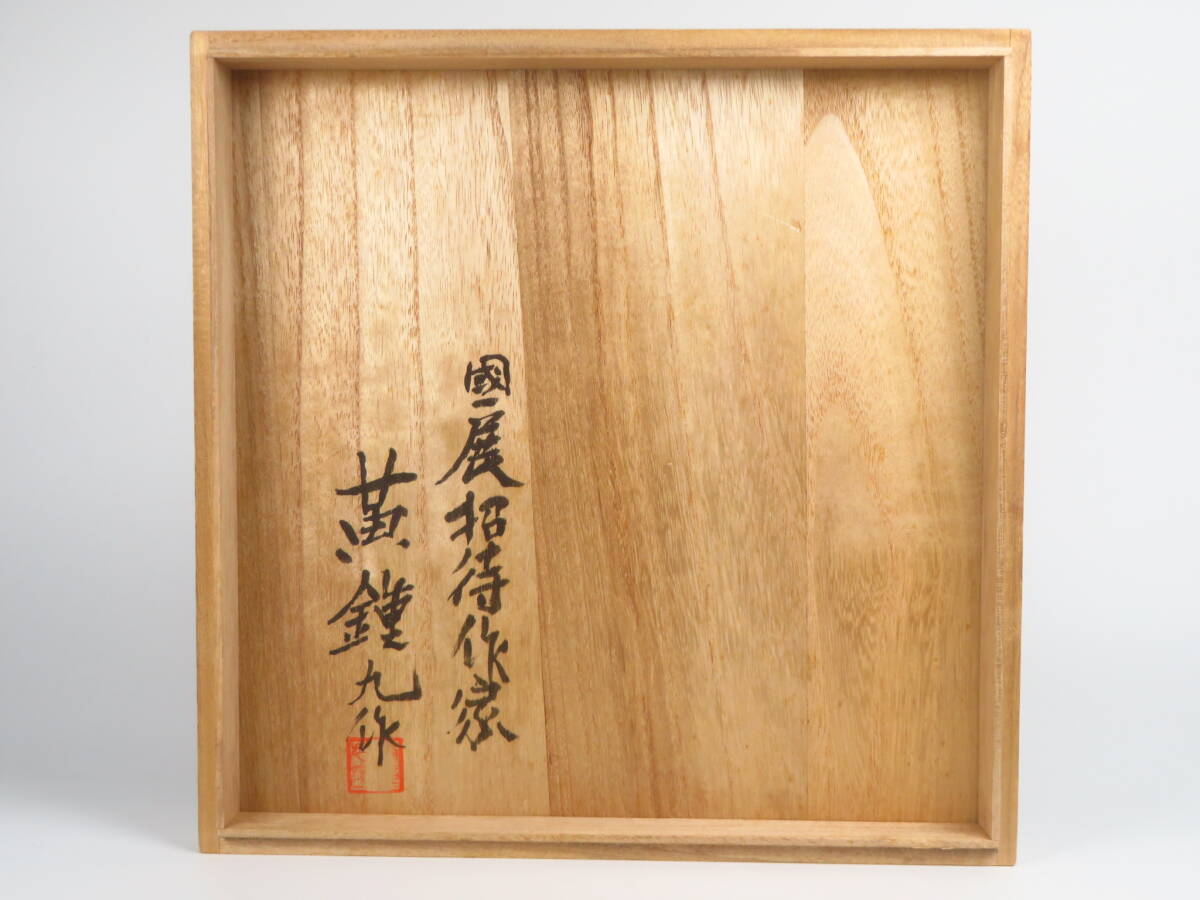 國展招待作家
黄鍾九作